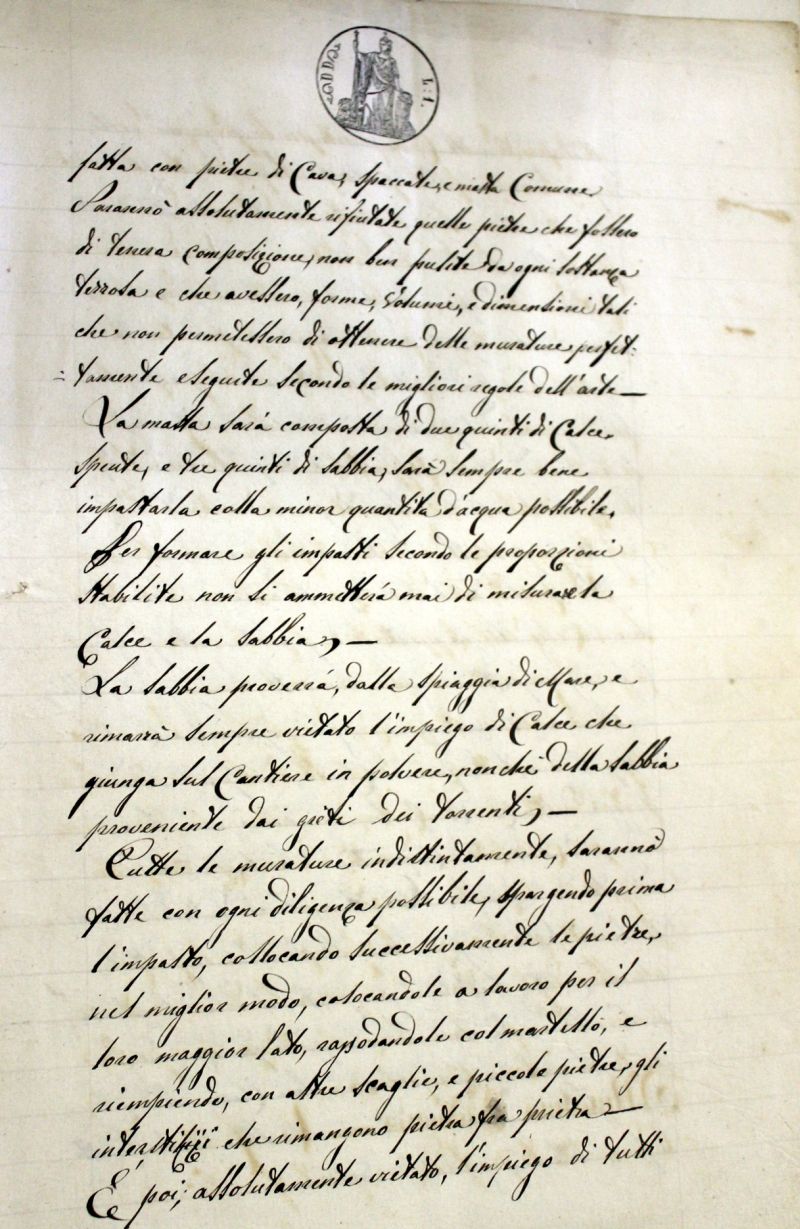 L: 1.
fatta con pietre di Cava, spaccate, e malta Comune.
Saranno assolutamente rifiutate quelle pietre che fossero
di tenera composizione, non ben pulite da ogni sostanza
terrosa e che avessero, forme, volumi, e dimensioni tali
che non permettessero di ottenere delle murature perfet:
= tamente eseguite secondo le migliori regole dell'arte —
La malta sará composta di due quinti di Calce
spenta, e tre quinti di sabbia, sarà sempre bene
impastarla colla minor quantità d'acqua possibile.
Per formare gli impasti secondo le proporzioni
stabilite non si ammetterá mai di misurare la
Calce e la sabbia, —
La sabbia proverrá, dalla spiaggia di Mare, e
rimarrà sempre vietato l'impiego di Calce che
giunga sul Cantiere in polvere, nonchè della sabbia
proveniente dai gréti dei torrenti, —
Tutte le murature indistintamente, saranno
fatte con ogni diligenza possibile, spargendo prima
l'impasto, collocando successivamente le pietre,
nel miglior modo, colocandole a lavoro per il
loro maggior lato, rassodandole col martello, e
riempiendo, con altre scaglie, e piccole pietre, gli
interstizii che rimangono pietra fra pietra —
É poi, assolutamente vietato, l'impiego di tutti